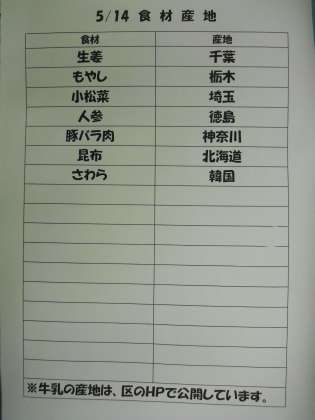 5/14 食材産地
食材 産地
生姜 千葉
もやし 栃木
小松菜 埼玉
人参 徳島
豚バラ肉 神奈川
昆布 北海道
さわら 韓国
※牛乳の産地は、区のHPで公開しています。